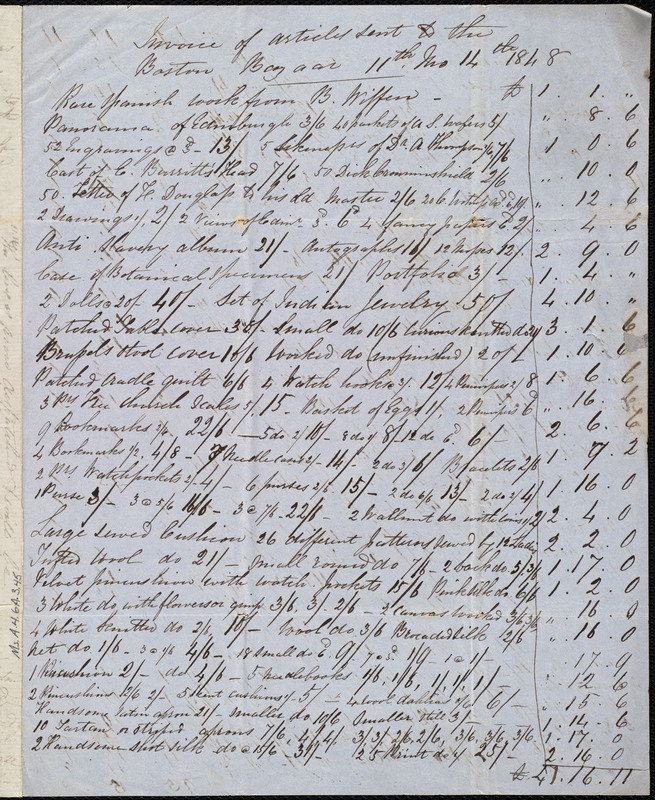 Invoice of articles sent to the
Boston Bazaar 11th Mo 14th 1848
Rare Spanish work from B. Wiffen - £ 1 . 1 . "
Panorama of Edinburgh 3/6 40 packets of A S wafers 5/ " 8 . 6
52 Engravings @ 3d - 13/ 5 Likenesses of Dr. A Thompson 7/6 1 0 . 6
Cast of E. Burritt's Head 7/6 50 Dick Crowninshield 2/6 " 10 . 0
50 Letter of F. Douglass to his old Master 2/6 " 12 . 6
2 Drawings 1/ 2/ 2 Views of 3d 6d 4 fancy 6d 2/ " 4 . 6
Anti Slavery album 21/- Autographs 16/ 12/ 2 . 9 . 0
Case of Botanical Specimens 21/ Portfolio 3/ 1 . 4 . "
2 Dolls @ 20/- 40/- Set of Indian Jewelry 50/ 4 . 10 "
Patched Table cover 38/- Small do 10/6 Curious knitted do 3 . 1 . 6
Brussels stool cover 10/6 Worked do (unfinished) 20/ 1 . 10 . 6
Patched cradle quilt 6/6 4 Watch hooks 3/. 12/ 1 . 6 . 6
3 Prs Free Church Scales 5/ 15 - Basket of Eggs 1/. 2 6d " 16 . "
9 Bookmarks 2/6 22/6 - 5 do 2/ 10/- 8 do 1/ 8/ 12 do 6d. 6/- 2 . 6 .
4 Bookmarks 1/2. 4/8 - 7 Needle cases 2/- 14/- 3 do 2/ 6/ Bracelets 2/6 1 . 7 . 2
2 Prs Watchpockets 2/- 4/- 6 purses 2/6 15/- 2 do 6/6 13/- 2 do 2/ 4/ 1 . 16 . 0
1 Purse 3/- 3 @ 5/6 16/6 - 3 @ 7/6 22/6 - 2 Wallnut do with 2 . 4 . 0
Large sewed Cushion 26 different patterns sewed by 12 Ladies 2 . 2 . 0
Tufted wool do 21/- Small round do 7/6 - 2 back do 5/ 3/6 1 . 17 . 0
Velvet pincushion with watch pockets 15/6 Pink silk do 6/6 1 . 2 . 0
3 White do with flowers or gimp 3/6, 3/. 2/6 - 2 Canvas worked 3/6 3/6 " 16 0
4 White knitted do 2/6, 10/- wool do 3/6 Brocaded silk 2/6 " 16 . 0
Net do 1/6 - 3 @ 1/6 4/6 - 18 small do 6d. 9/. 7 @ 3d. 1/9 - 1 @ 1/- . 17 . 9
1 Pincushion 2/- do 4/6 - 5 needlebooks 1/6, 1/6, 1/, 1/, 1/- . 12 . 6
2 Pincushions 2/6 2/- 5 cushions 1/- 5/- 4 wool dahlias 1/6 6/- " 15 . 6
Handsome satin apron 21/- smaller do 10/6 smaller still 3/- 1 . 14 . 6
10 Tartan or striped aprons 7/6, 4/, 4/, 3/, 3/, 2/6, 2/6, 3/6, 3/6, 3/6 1 . 17 . 0
2 Handsome shot silk do @ 15/6 31/- 25 Print do 1/ 25/- 2 . 16 . 0
£ 41 . 16 . 11
Ms. A.4.6A.3.45